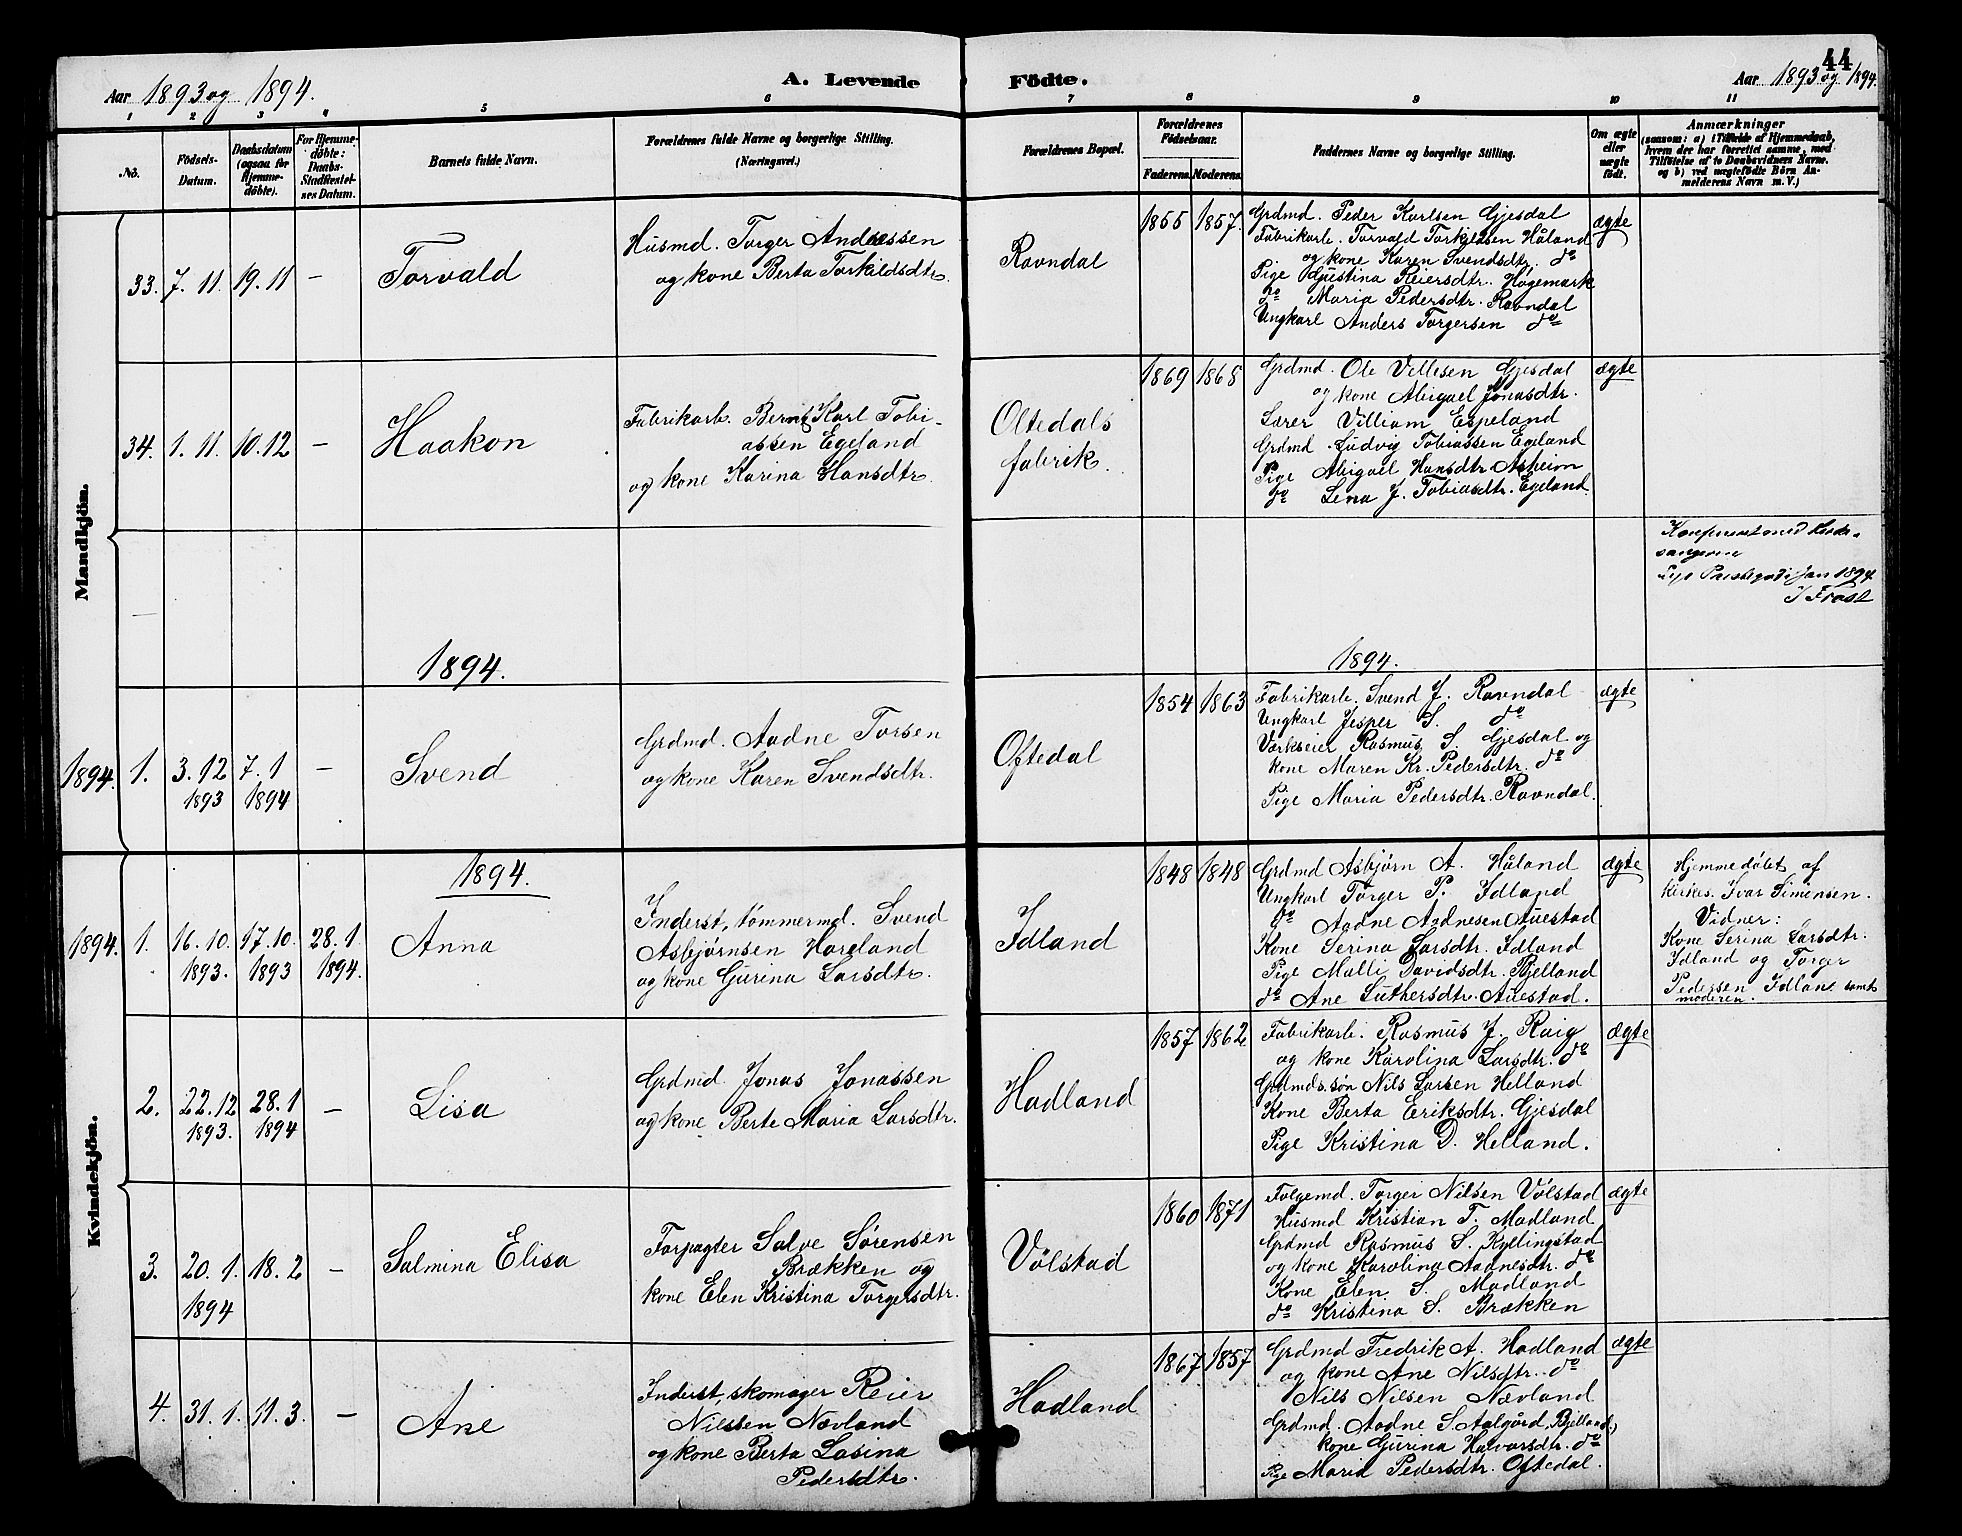 44
Aar 1893 og 1894.
A. Levende Födte.
Aar 1893 og 1894.
1 2 3 4 5 6 7 8 9 10 11
No.
Födsels-
Datum.
Daabsdatum
(ogsaa for
Hjemme-
döbte).
For Hjemme-
döbte:
Daabs-
Stadfæstel-
ses Datum.
Barnets fulde Navn.
Forældrenes fulde Navne og borgerlige Stilling.
(Næringsvei.)
Forældrenes Bopæl.
Forældrenes
Födselsaar.
Faderens. Moderens.
Faddernes Navne og borgerlige Stilling.
Om ægte
eller
uægte
født.
Anmærkninger
(saasom: a) i Tilfælde af Hjemmedaab,
hvem der har forrettet samme, med
Tilföielse af to Daabsvidners Navne.
og b) ved uægtefödte Börn An-
melderens Navn m. V.)
Mandkjön.
33. 7. 11. 19. 11 —
Torvald
Husmd. Torger Andreassen
og kone Berta Torkildsdtr.
Ravndal
1855 1857.
Grdmd. Peder Karlsen Gjesdal
Fabrikarb. Torvald Torkildsen Håland
og kone Karen Svendsdtr. do
Pige Gjustina Reiersdtr. Høgemark
do Maria Pedersdtr. Ravndal
Ungkarl Anders Torgersen do
ægte
34. 1. 11. 10. 12 —
Haakon
Fabrikarb. Bernt Karl Tobi-
assen Egeland
og kone Karina Hansdtr.
Oltedals
fabrik.
1869 1868
Grdmd. Ole Villesen Gjesdal
og kone Abigael Jonasdtr.
Lærer Villiam Espeland
Grdmd. Ludvig Tobiassen Egeland
Pige Abigael Hansdtr. Asheim
do Lena J. Tobiasdtr. Egeland.
ægte
1894
1894.
1894.
1894. 1. 3. 12 1893 7. 1 1894 —
Svend
Grdmd. Aadne Torsen
og kone Karen Svendsdtr.
Oftedal
1854 1863
Fabrikarb. Svend J. Ravndal
Ungkarl Jesper S. do
Værkseier Rasmus S. Gjesdal og
kone Maren Kr. Pedersdtr. do
Pige Maria Pedersdtr. Ravndal.
ægte
Kvindekjön.
1894.
1894. 1. 16. 10. 1893. 17. 10. 1893 28. 1 1894.
Anna
Inderst, tømmermd. Svend
Asbjørnsen Haneland
og kone Gurina Larsdtr.
Idland
1848 1848
Grdmd Asbjørn A. Håland
Ungkarl Torger P. Idland
do Aadne Aadnesen Auestad
Kone Serina Larsdtr. Idland
Pige Malli Davidsdtr. Bjelland
do Ane Luthersdtr. Auestad.
ægte
Hjemmedøbt af
kirkes. Ivar Simensen.
Vidner:
Kone Serina Larsdtr.
Idland og Torger
Pedersen Idland samt
moderen.
2. 22. 12 1893. 28. 1 1894 —
Lisa
Grdmd. Jonas Jonassen
og kone Berte Maria Larsdtr.
Hadland
1857 1862
Fabrikarb. Rasmus J. Raig
og kone Karolina Larsdtr. do
Grdmds. søn Nils Larsen Helland
Kone Berta Eriksdtr. Gjesdal
Pige Kristina D. Helland.
ægte
3. 20. 1. 1894 18. 2 —
Salmina Elisa
Forpagter Salve Sørensen
Brækken og
kone Elen Kristina Torgersdtr.
Vølstad
1860 1871
Folgemd. Torger Nilsen Vølstad
Husmd Kristian T. Madland
Grdmd Rasmus S. Kyllingstad
og kone Karolina Aadnesdtr. do
Kone Elen S. Madland
do Kristina S. Brækken
ægte
4. 31. 1. 11. 3. —
Ane
Inderst, skomager Reier
Nilssen Nævland
og kone Berta Lasina
Pedersdtr.
Hadland
1867 1857
Grdmd Fredrik A. Hadland
og kone Ane Nilsdtr. do
Nils Nilsen Nævland
Grdmd. Aadne S. Aalgård, Bjelland,
kone Gurina Halvarsdtr. do
Pige Maria Pedersdtr. Oftedal.
ægte